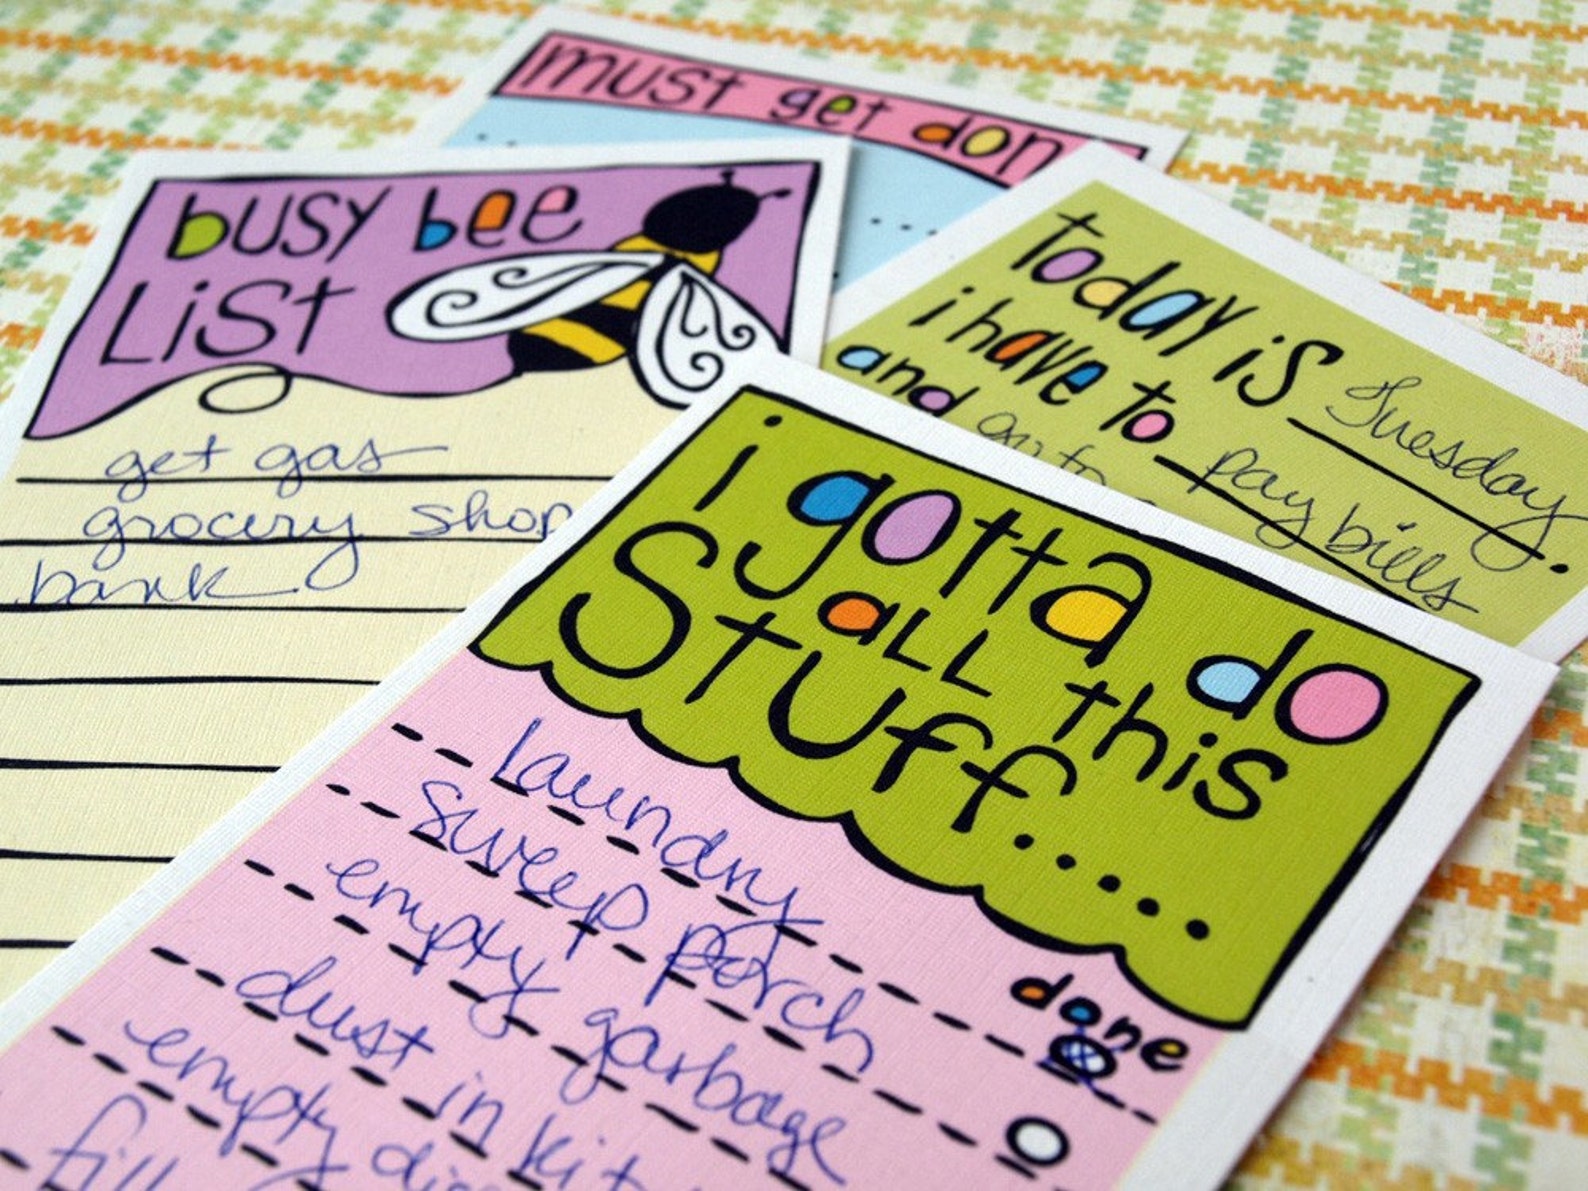 must get don
busy bee
List
get gas
grocery shop
bank
today is Tuesday.
i have to pay bills
and go to
i gotta do
all this
Stuff.....
done
laundry
sweep porch
empty garbage
dust in kit
empty dis
fill